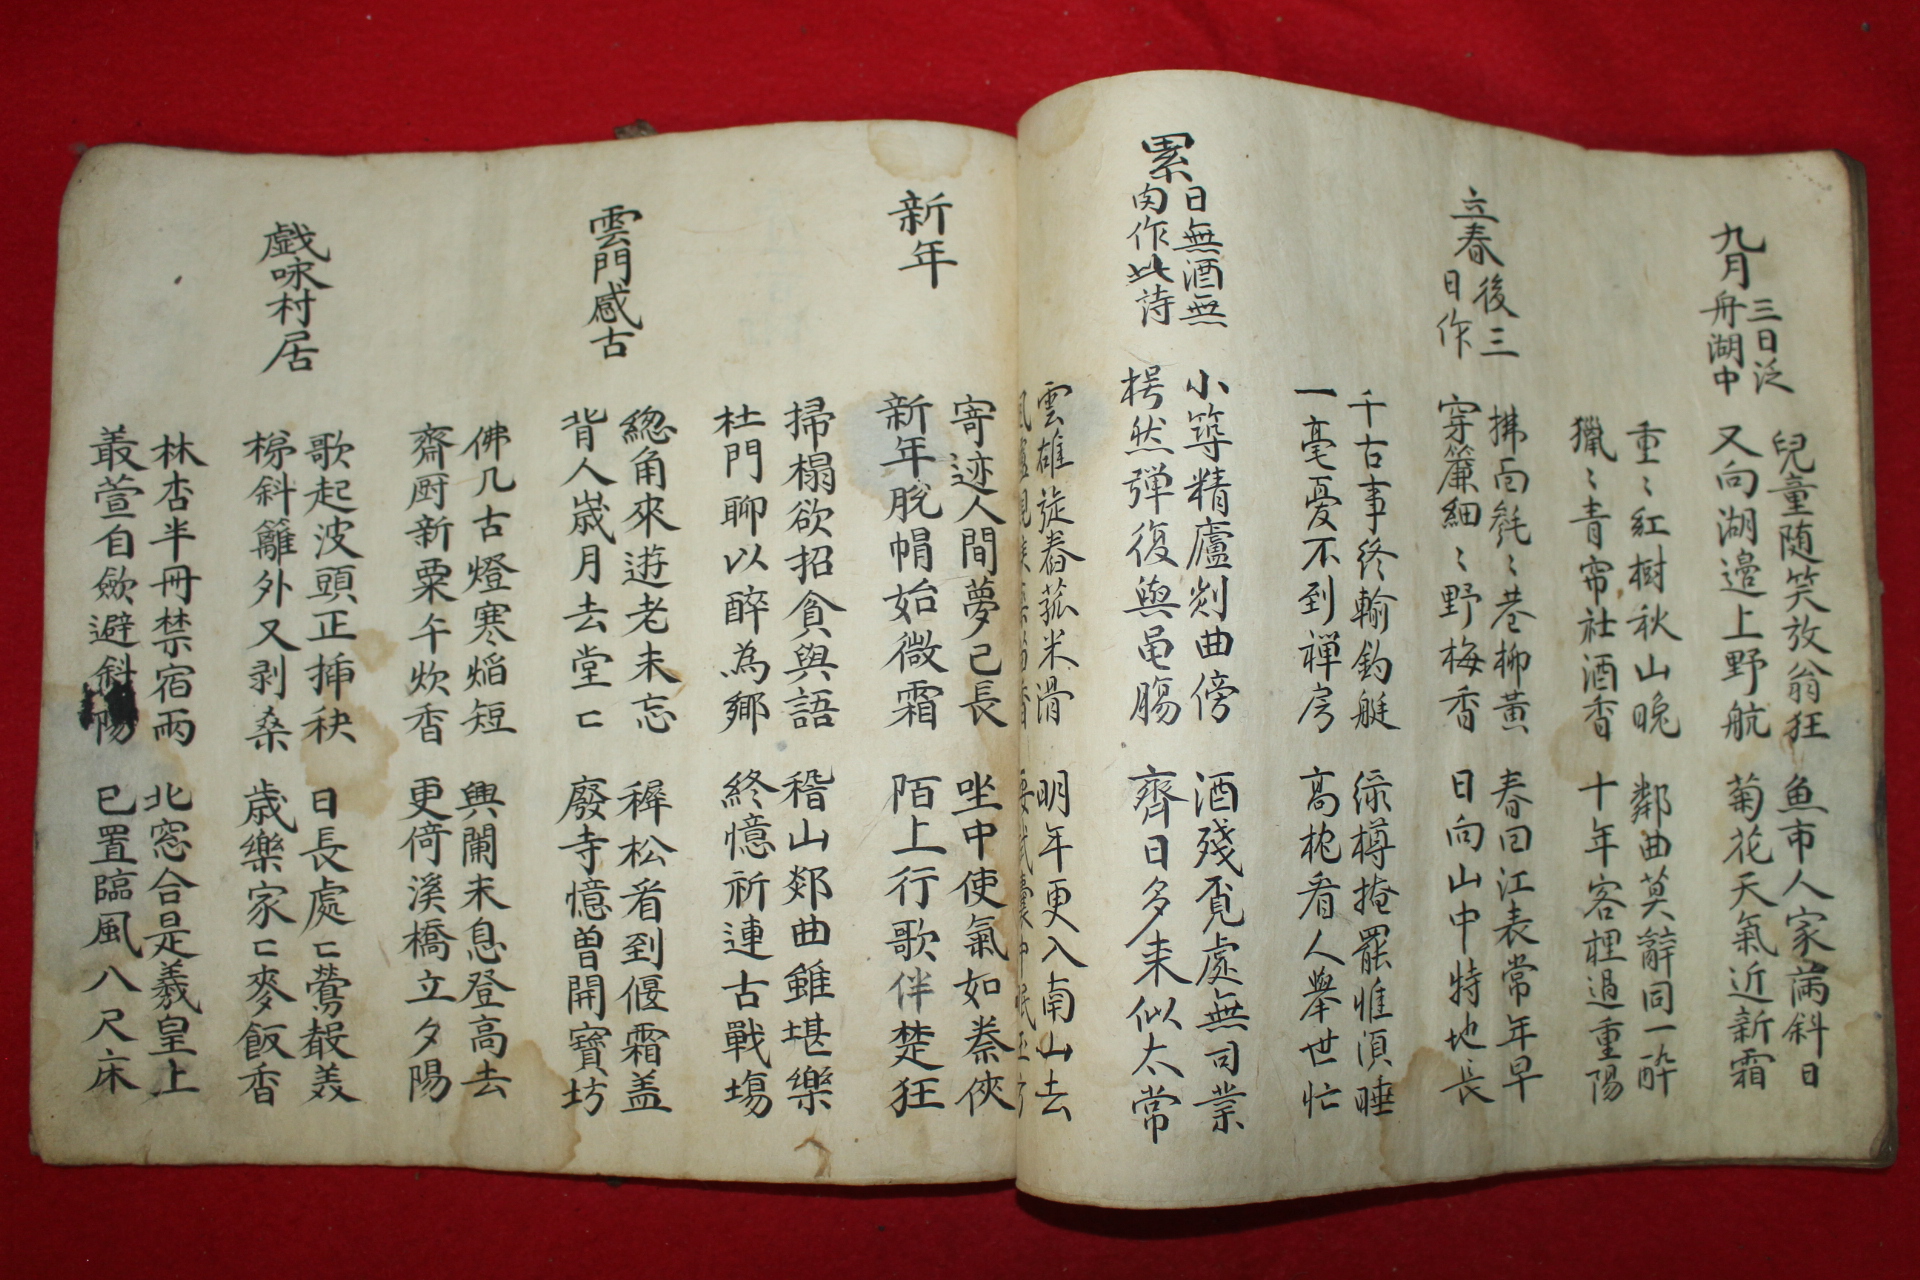 九月三日泛舟湖中
兒童随笑放翁狂
又向湖邊上野航
魚市人家滿斜日
菊花天氣近新霜
重〻紅樹秋山晚
獵〻青帘社酒香
鄰曲莫辭同一醉
十年客裡過重陽
立春後三日作
拂面毿〻巷柳黃
穿簾細〻野梅香
春回江表常年早
日向山中特地長
千古事終輸釣艇
一毫憂不到禅房
緑樽掩罷惟須睡
高枕看人舉世忙
累日無酒無肉作此詩
小築精廬剡曲傍
枵然弾復與黽膓
酒殘覔處無司業
齊日多来似太常
雲碓旋舂菰米滑
風爐親候藥苗香
明年更入南山去
要試囊中服玉方
新年
寄迹人間夢已長
新年脫帽始微霜
坐中使氣如秦俠
陌上行歌伴楚狂
掃榻欲招貧與語
杜門聊以醉為鄉
稽山郯曲雖堪樂
終憶祈連古戰塲
雲門感古
緫角來遊老未忘
背人歲月去堂〻
稺松看到偃霜盖
廢寺憶曽開寶坊
佛几古燈寒焰短
齋厨新粟午炊香
興闌未息登高去
更倚溪橋立夕陽
戱咏村居
歌起波頭正揷秧
梯斜籬外又剥桑
日長處〻鶯聲美
歲樂家〻麥飯香
林杏半丹禁宿雨
叢萱自歛避斜陽
北窓合是羲皇上
已置臨風八尺床